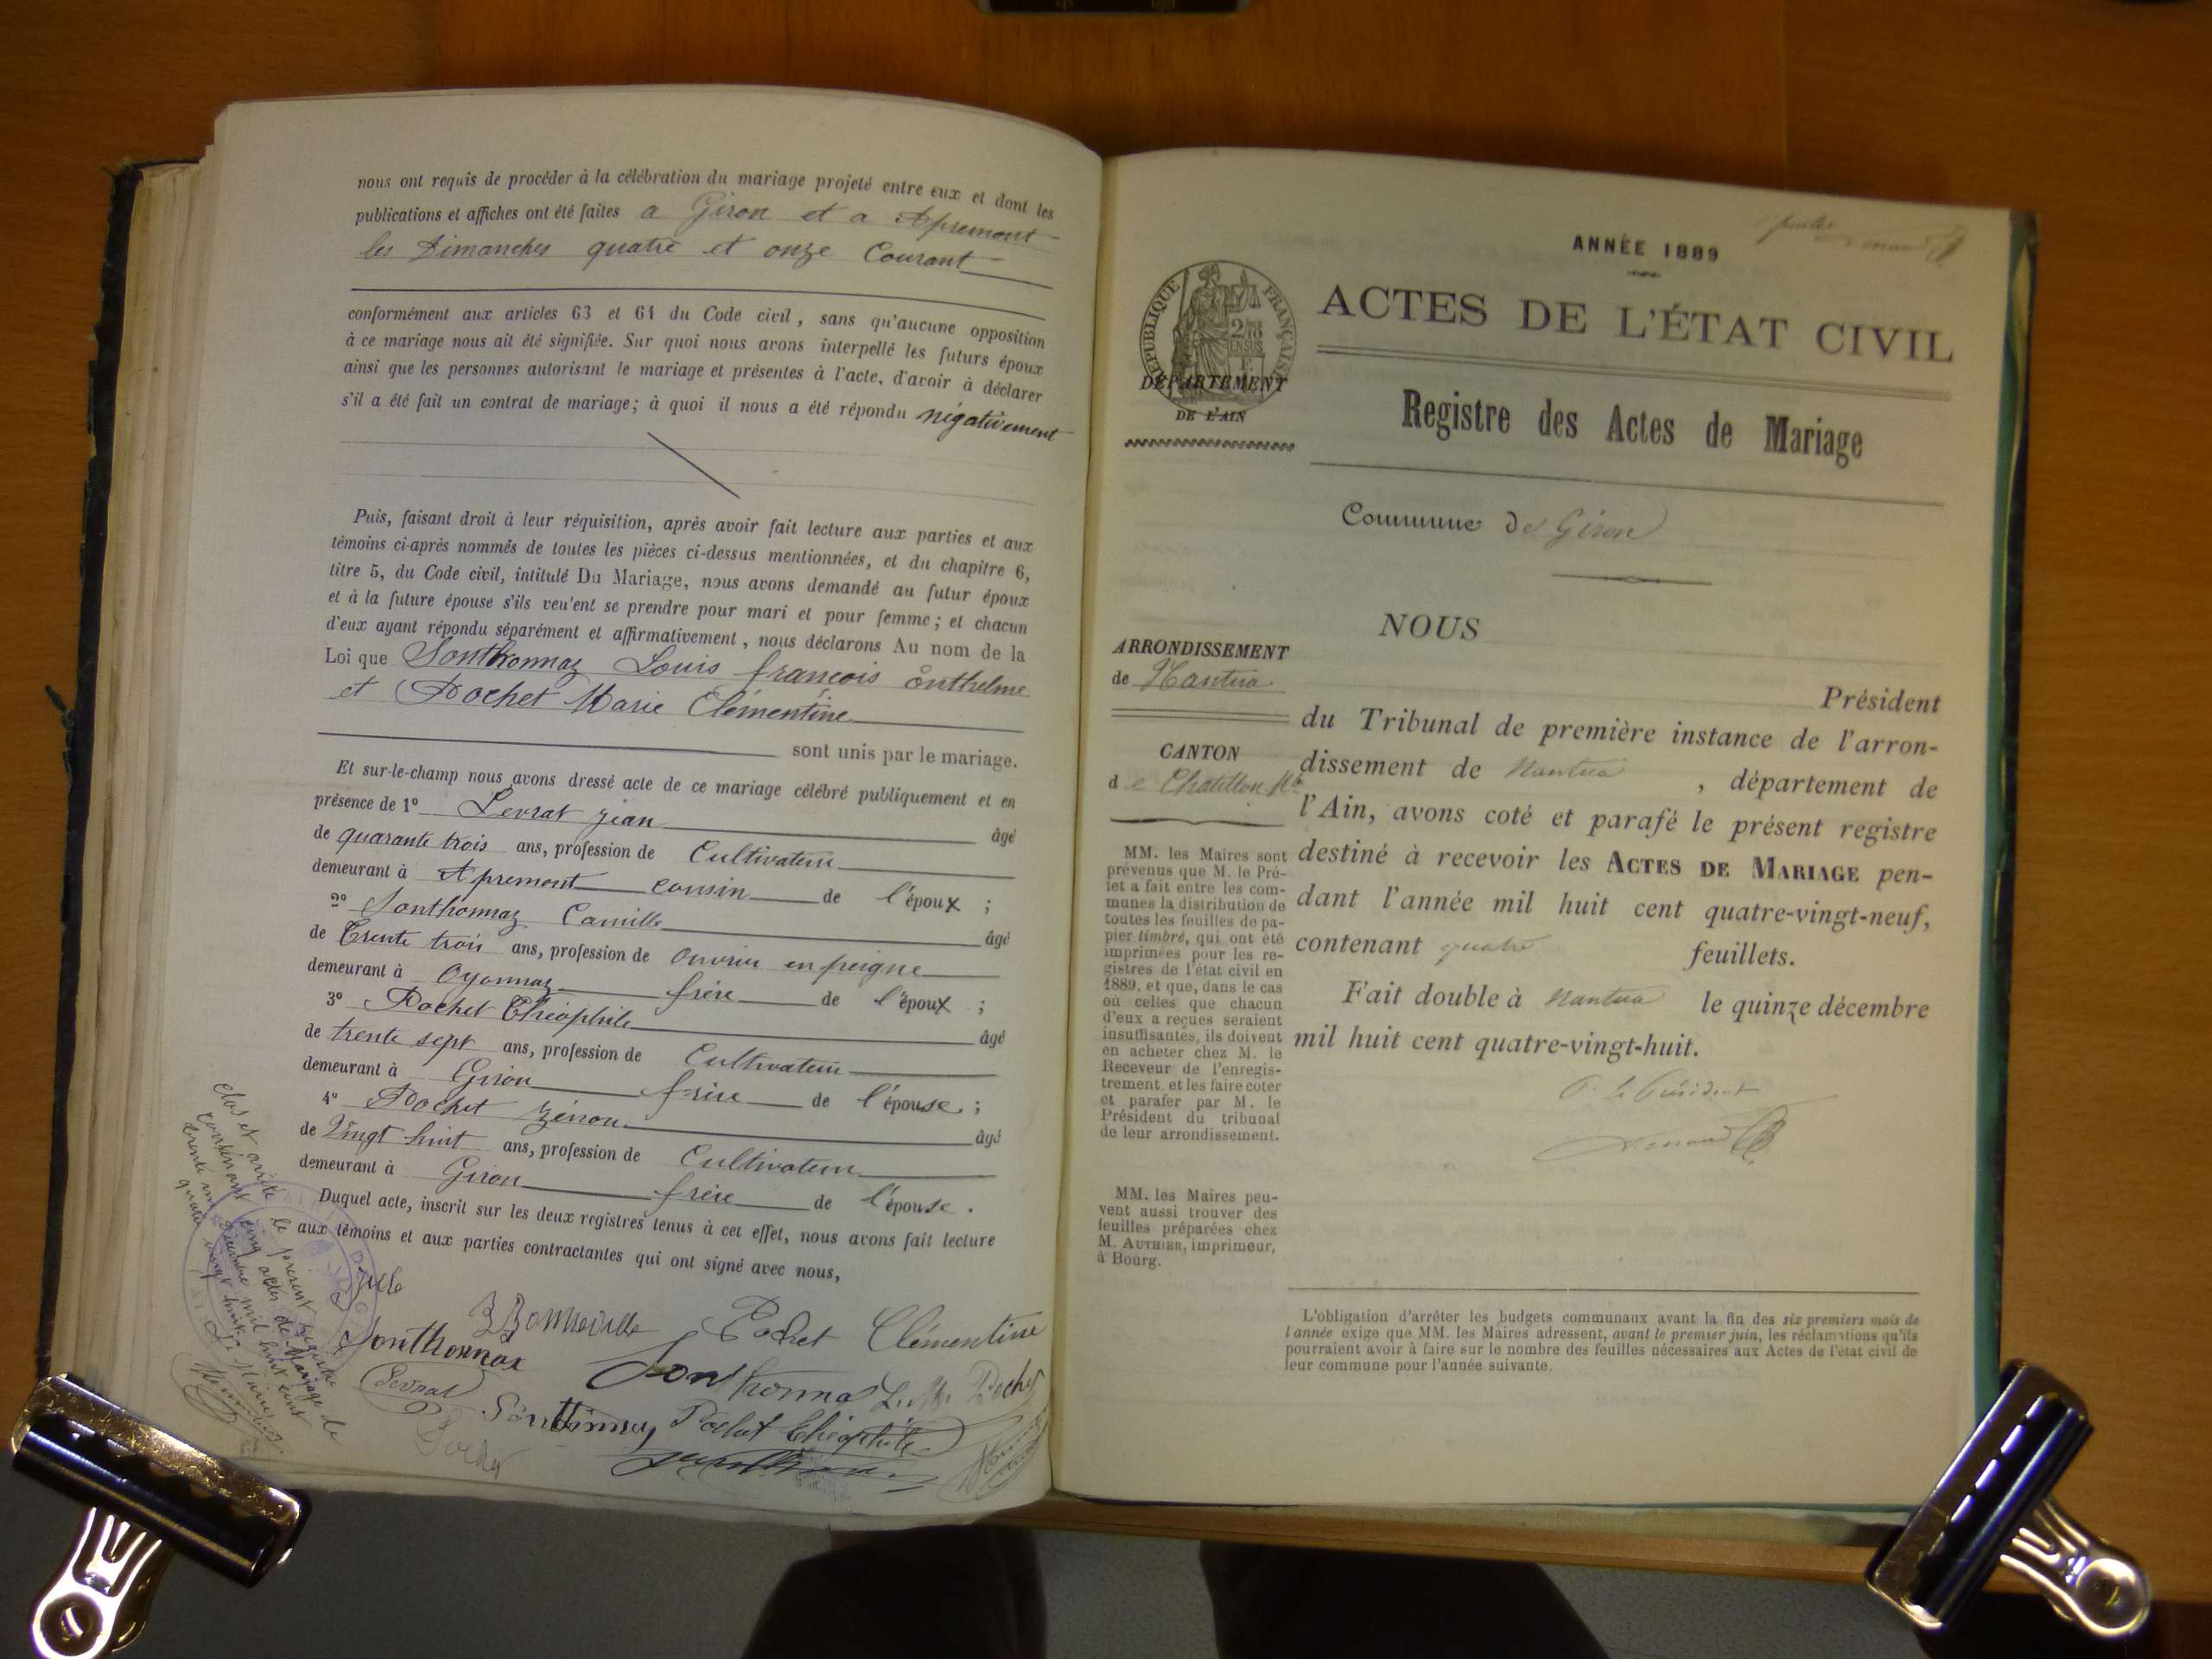 nous ont requis de procéder à la célébration du mariage projeté entre eux et dont les
publications et affiches ont été faites a Giron et a Apremont
les Dimanches quatre et onze Courant
conformément aux articles 63 et 64 du Code civil, sans qu'aucune opposition
à ce mariage nous ait été signifiée. Sur quoi nous avons interpellé les futurs époux
ainsi que les personnes autorisant le mariage et présentes à l'acte, d'avoir à déclarer
s'il a été fait un contrat de mariage; à quoi il nous a été répondu négativement
Puis, faisant droit à leur réquisition, après avoir fait lecture aux parties et aux
témoins ci-après nommés de toutes les pièces ci-dessus mentionnées, et du chapitre 6,
titre 5, du Code civil, intitulé Du Mariage, nous avons demandé au futur époux
et à la future épouse s'ils veu'ent se prendre pour mari et pour femme; et chacun
d'eux ayant répondu séparément et affirmativement, nous déclarons Au nom de la
Loi que Sonthonnaz Louis françois Anthelme
et Rochet Marie Clémentine
sont unis par le mariage.
Et sur-le-champ nous avons dressé acte de ce mariage célébré publiquement et en
présence de 1º Levrat jean âgé
de quarante trois ans, profession de Cultivateur
demeurant à Apremont cousin de l'époux ;
2º Sonthonnaz Camille âgé
de Trente trois ans, profession de ouvrier en peigne
demeurant à Oyonnaz frère de l'époux ;
3º Rochet Théophile âgé
de trente sept ans, profession de Cultivateur
demeurant à Giron frère de l'épouse ;
4º Rochet Zénon âgé
de Vingt huit ans, profession de Cultivateur
demeurant à Giron frère de l'épouse.
Duquel acte, inscrit sur les deux registres tenus à cet effet, nous avons fait lecture
aux témoins et aux parties contractantes qui ont signé avec nous,
Clos et arrêté le présent registre
contenant cinq actes de Mariage le
trente un décembre mil huit cent
quatre vingt huit
Le Maire
Rochet Clémentine
Sonthonnax
Levrat
Rochet
Rochet Théophile
Rochet
ANNÉE 1889
ACTES DE L'ÉTAT CIVIL
RÉPUBLIQUE FRANÇAISE
DÉPARTEMENT
DE L'AIN
Registre des Actes de Mariage
Commune de Giron
NOUS
ARRONDISSEMENT
de Nantua
CANTON
de Chatillon Mlle
MM. les Maires sont
prévenus que M. le Pré-
fet a fait entre les com-
munes la distribution de
toutes les feuilles de pa-
pier timbré, qui ont été
imprimées pour les re-
gistres de l'état civil en
1889, et que, dans le cas
où celles que chacun
d'eux a reçues seraient
insuffisantes, ils doivent
en acheter chez M. le
Receveur de l'enregis-
trement, et les faire coter
et parafer par M. le
Président du tribunal
de leur arrondissement.
MM. les Maires peu-
vent aussi trouver des
feuilles préparées chez
M. AUTHIER, imprimeur,
à Bourg.
Président
du Tribunal de première instance de l'arron-
dissement de Nantua , département de
l'Ain, avons coté et parafé le présent registre
destiné à recevoir les ACTES DE MARIAGE pen-
dant l'année mil huit cent quatre-vingt-neuf,
contenant quatre feuillets.
Fait double à Nantua le quinze décembre
mil huit cent quatre-vingt-huit.
P. le Président
L'obligation d'arrêter les budgets communaux avant la fin des six premiers mois de
l'année exige que MM. les Maires adressent, avant le premier juin, les réclamations qu'ils
pourraient avoir à faire sur le nombre des feuilles nécessaires aux Actes de l'état civil de
leur commune pour l'année suivante.